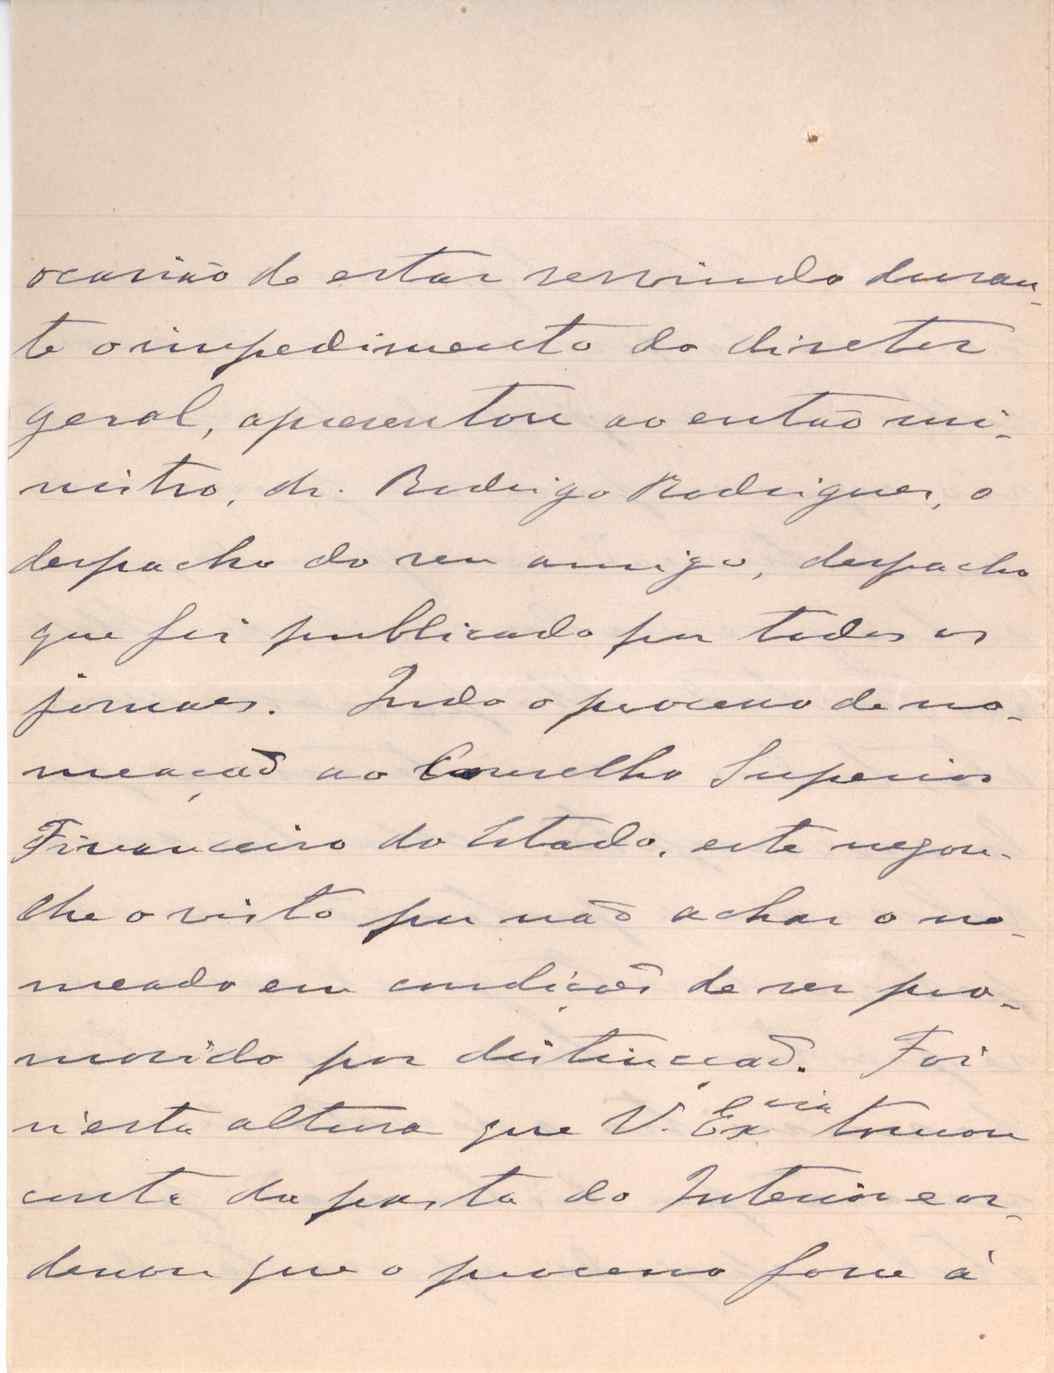 ocasião de estar servindo duran-
te o impedimento do diretor
geral, apresentou ao então mi-
nistro, dr. Rodrigo Rodrigues, o
despacho do seu amigo, despacho
que foi publicado por todos os
jornaes. Indo o processo de no-
meação ao Conselho Superior
Financeiro do Estado, este negou-
lhe o visto por não achar o no-
meado em condições de ser pro-
movido por distincção. Foi
n'esta altura que V. Ex.cia tomou
conta da pasta do Interior e or-
denou que o processo fosse á